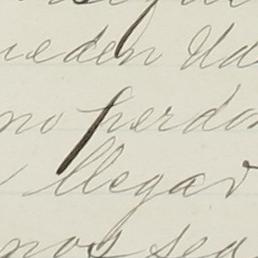 ueden Ud
no perdon
llegar
nos sea